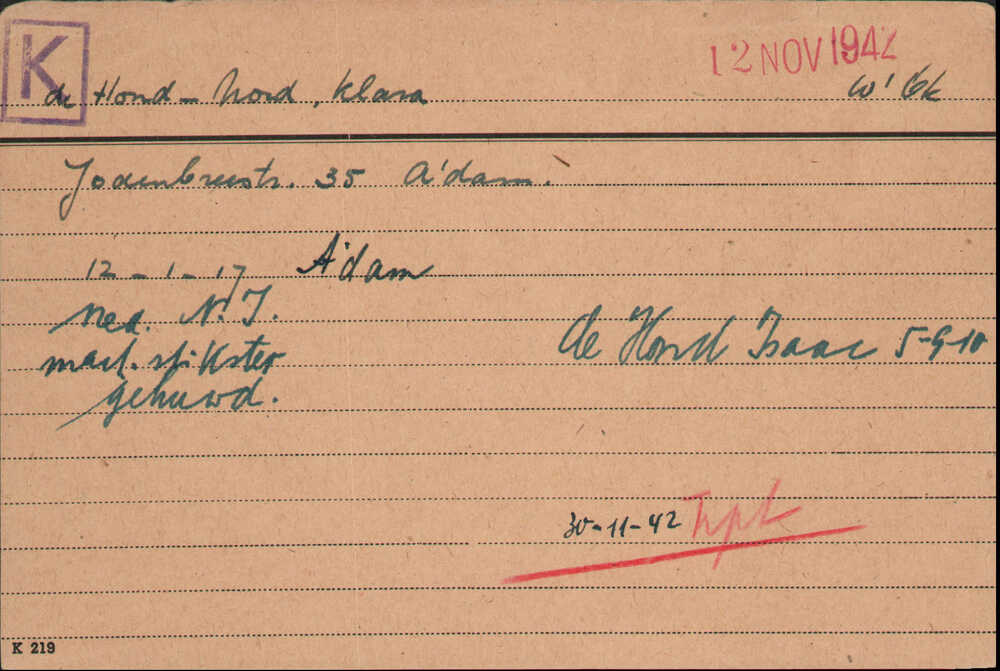 K
12 NOV 1942
de Hond - Nord, Klara
Jodenbreestr. 35 A'dam.
12 - 1 - 17 A'dam
Ned. N.I.
mach. stikster
gehuwd.
de Hond Isaac 5-9-10
30-11-42 Tpt
K 219